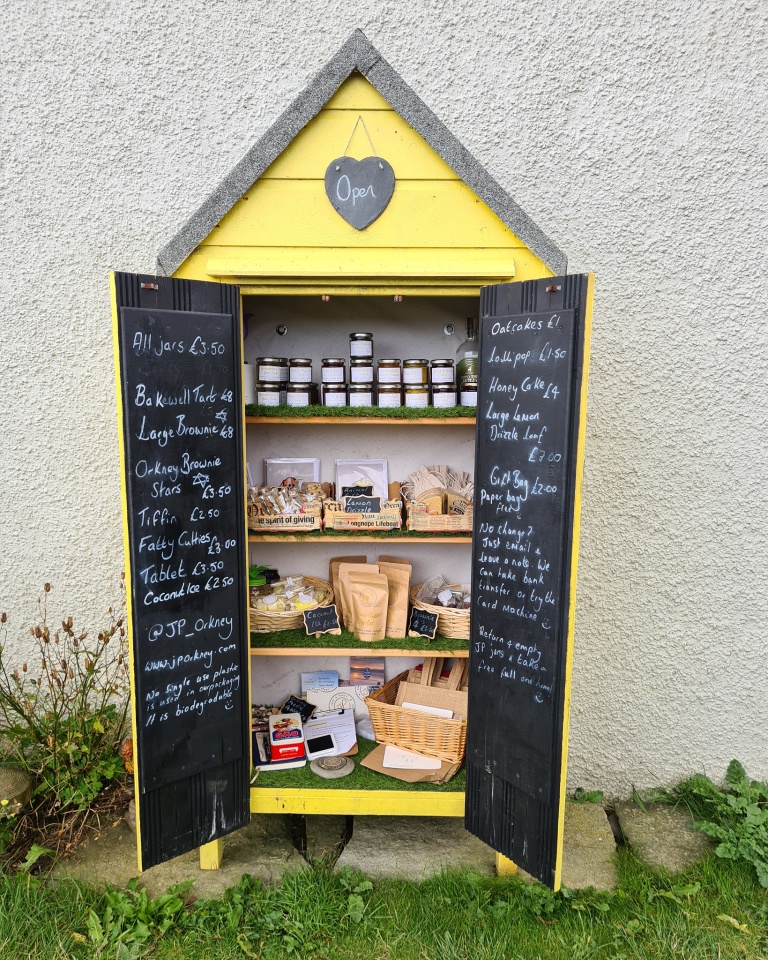 Open
All jars £3.50
Bakewell Tart £8
Large Brownie £8
Orkney Brownie
Stars £3.50
Tiffin £2.50
Fatty Cutties £3.00
Tablet £3.50
Coconut Ice £2.50
@JP_Orkney
www.jporkney.com
No single use plastic
is used in our packaging
It is biodegradable
Oatcakes £1
Lollipop £1.50
Honey Cake £4
Large Lemon
Drizzle Loaf
£7.00
Gift Bag £2.00
Paper bag
free
No change?
Just email &
leave a note. We
can take bank
transfer or try the
card machine
Return 4 empty
JP jars & take a
free full one home!
the spirit of giving
Lemon
Drizzle
Longhope Lifeboat
Coconut